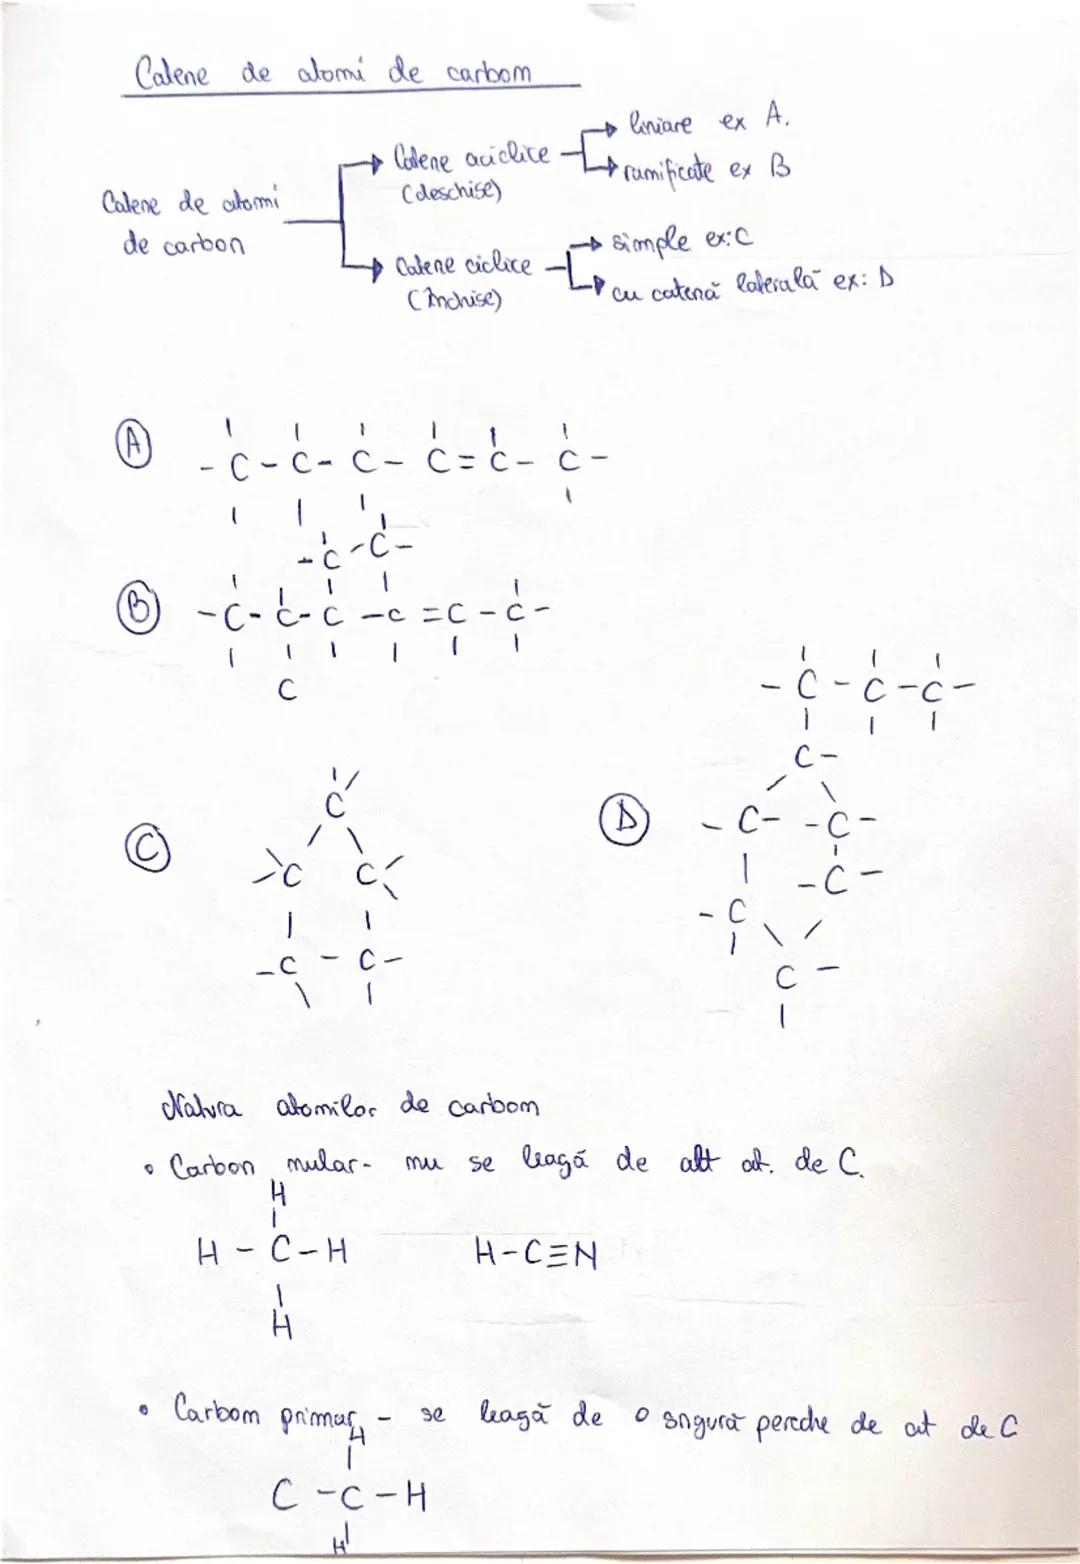 Catene de atomi de carbon
liniare ex A.
Catene aciclice
(deschise)
ramificate ex B
Catene de atomi
de carbon
simple ex: C
Catene ciclice
(închise)
cu catenă laterală ex: D
A
- C - C - C - C = C - C -
- C - C -
B
- C - C - C - C = C - C -
C
- C - C - C -
C -
C
D
- C - - C -
C C
- C -
- C
- C - C -
C -
Natura atomilor de carbon
• Carbon nular - nu se leagă de alt at. de C.
H
H - C - H H - C ≡ N
H
• Carbon primar - se leagă de o singură pereche de at de C
H
C - C - H
H